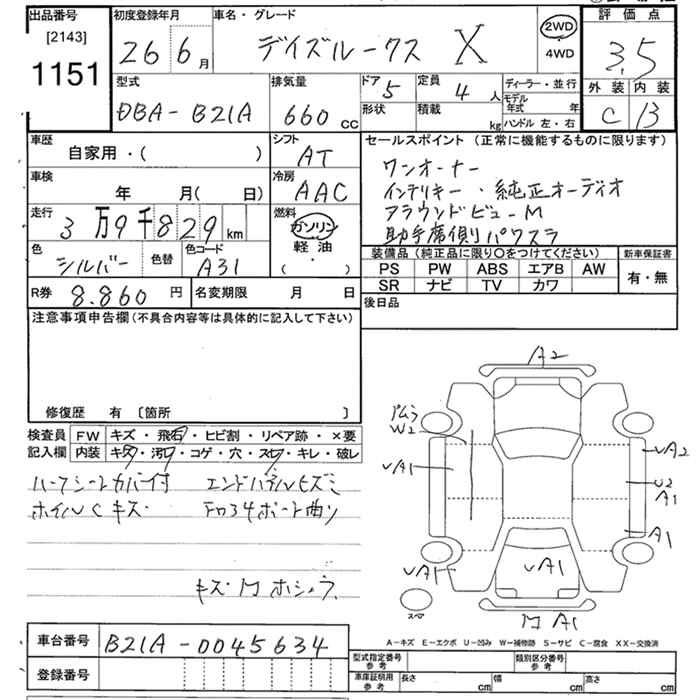 出品番号 初度登録年月 車名・グレード 評価点
[2143]
1151
26 6月 デイズルークス X 2WD ・4WD 3.5
外装 内装
C B
型式 排気量 ドア 5 定員 4人 ディーラー・並行
DBA-B21A 660cc 形状 積載 kg モデル年式 年
ハンドル 左・右
車歴 シフト セールスポイント (正常に機能するものに限ります)
自家用・( ) AT
ワンオーナー
車検 冷房
年 月( 日) AAC
インテリキー・純正オーディオ
走行 燃料
3万9千829km ガソリン
アラウンドビューM
軽油
( ・ )
助手席側パワスラ
色 色替 色コード
シルバー A31
装備品(純正品に限り〇をつけてください) 新車保証書
PS PW ABS エアB AW 有・無
SR ナビ TV カワ
R券 8.860円 名変期限 月 日
後日品
注意事項申告欄(不具合内容等は具体的に記入して下さい)
修復歴 有 [箇所 ]
検査員 FW キズ・飛石・ヒビ割・リペア跡・×要
記入欄 内装 キズ・汚れ・コゲ・穴・スレ・キレ・破レ
ハーフシートカバー付 エンドパネルヒズミ
ホイルCキズ
A2
W2
UA1
UA2
U2
A1
A1
UA1
UA1
スペア
A1
A-キズ E-エクボ U-凹み W-補修跡 S-サビ C-腐食 XX-交換済
車台番号 B21A-0045634
登録番号
型式指定番号 参考 類別区分番号 参考
車庫証明用 参考 長さ cm 幅 cm 高さ cm